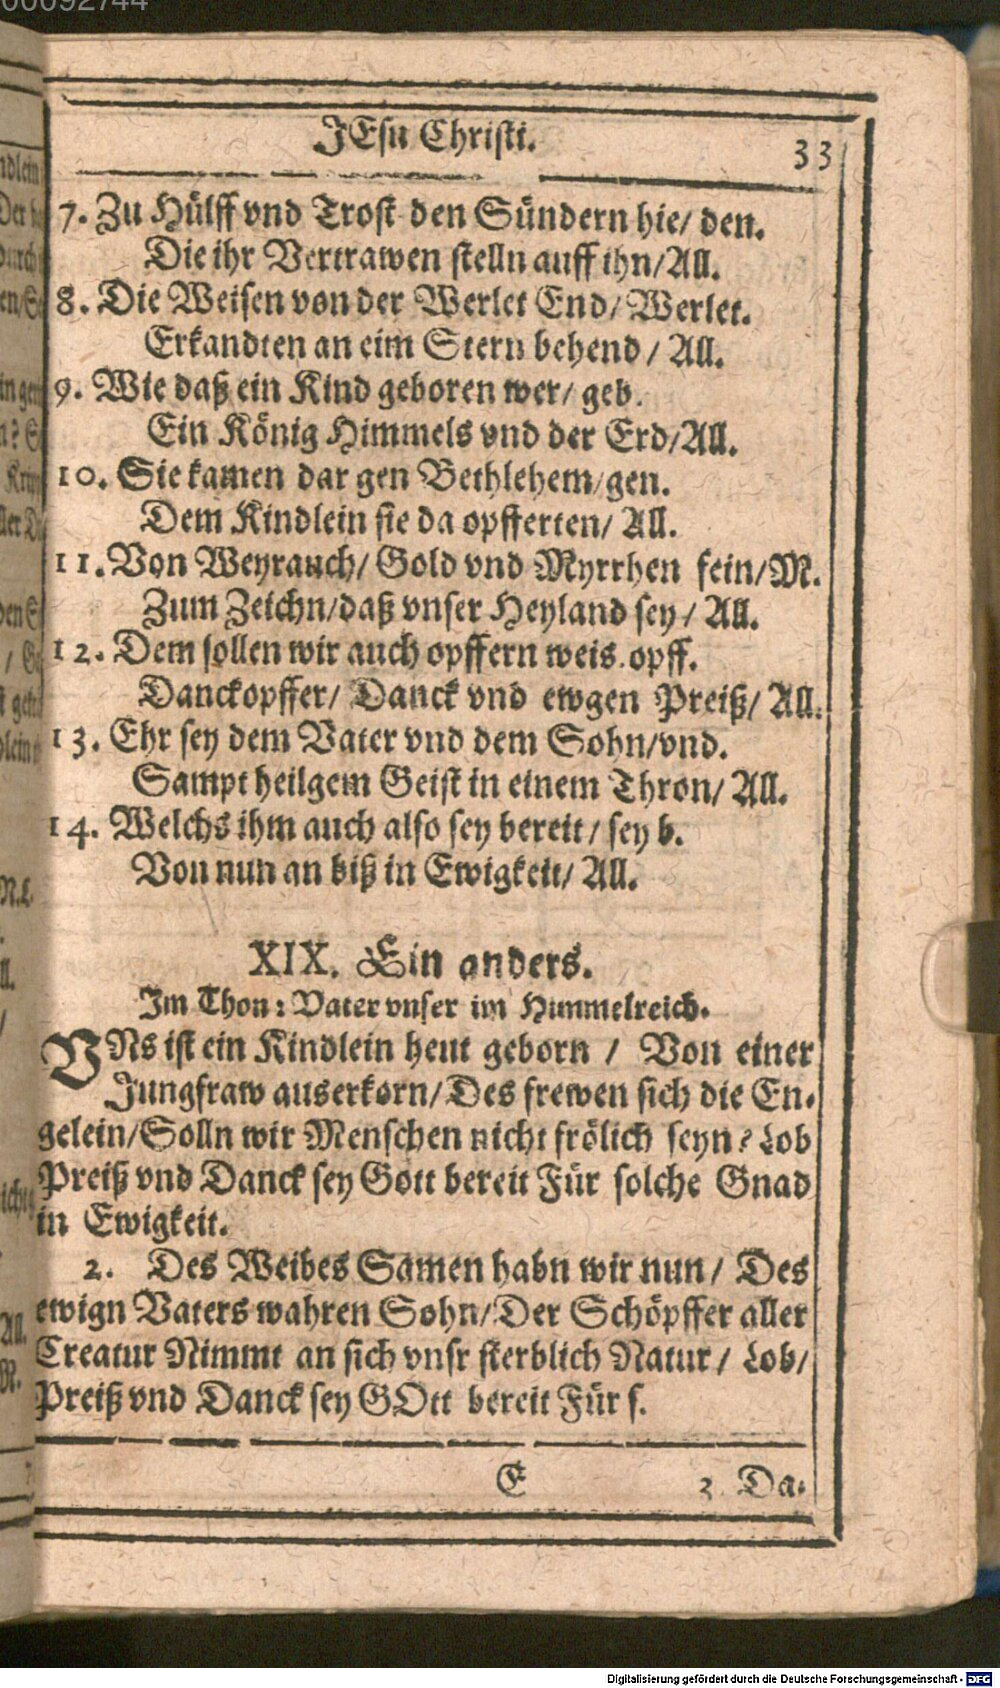 JEsu Christi.
33
7. Zu Hülff vnd Trost den Sündern hie/ den.
Die ihr Vertrawen stelln auff ihn/All.
8. Die Weisen von der Werlet End/ Werlet.
Erkandten an eim Stern behend / All.
9. Wie daß ein Kind geboren wer/ geb.
Ein König Himmels vnd der Erd/All.
10. Sie kamen dar gen Bethlehem/gen.
Dem Kindlein sie da opfferten/ All.
11. Von Weyrauch/ Gold vnd Myrrhen fein/M.
Zum Zeichn/daß vnser Heyland sey/ All.
12. Dem sollen wir auch opffern weis. opff.
Danckopffer/ Danck vnd ewgen Preiß/ All.
13. Ehr sey dem Vater vnd dem Sohn/vnd.
Sampt heilgem Geist in einem Thron/ All.
14. Welchs ihm auch also sey bereit / sey b.
Von nun an biß in Ewigkeit/ All.
XIX. Ein anders.
Im Thon: Vater vnser im Himmelreich.
VNs ist ein Kindlein heut geborn / Von einer
Jungfraw auserkorn/Des frewen sich die En-
gelein/Solln wir Menschen nicht frölich seyn? Lob
Preiß vnd Danck sey Gott bereit Für solche Gnad
in Ewigkeit.
2. Des Weibes Samen habn wir nun / Des
ewign Vaters wahren Sohn/Der Schöpffer aller
Creatur Nimmt an sich vnsr sterblich Natur / Lob/
Preiß vnd Danck sey GOtt bereit Für s.
E
3. Da-
Digitalisierung gefördert durch die Deutsche Forschungsgemeinschaft - DFG